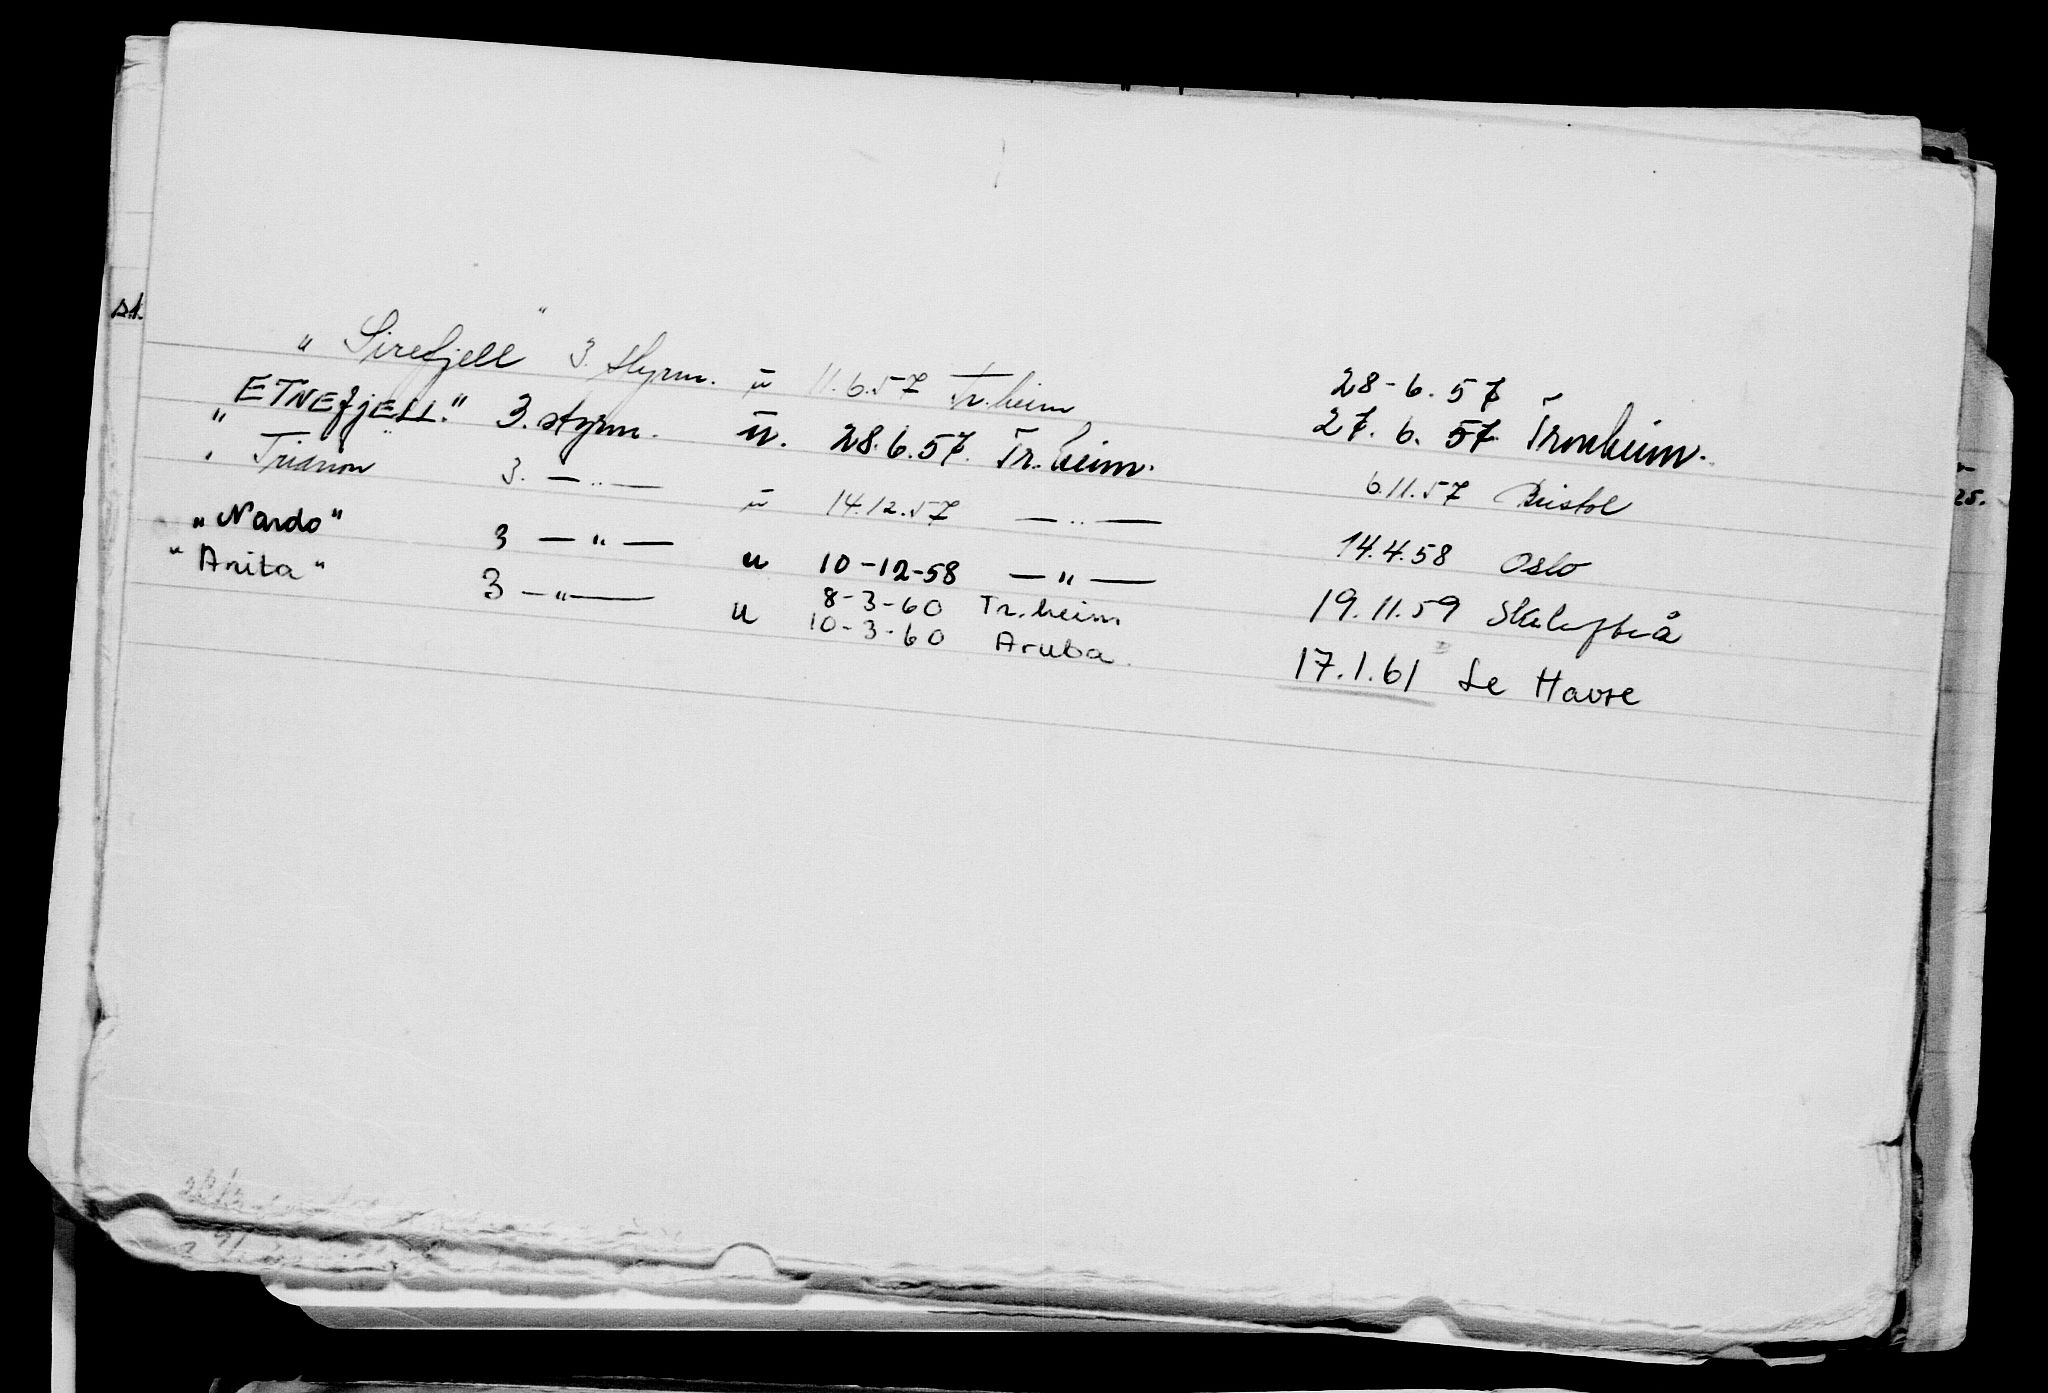 s.k.
" Sirefjell " 3. styrm. u 11.6.57 Tr.heim 28-6.57
" ETNEfjELL." 3. styrm. u. 28.6.57. Tr.heim. 27.6.57 Tronheim.
" Trianon " 3. — " — u 14.12.57 — " — 6.11.57 Bristol
"Nardo" 3 — " — u 10-12-58 — " — 14.4.58 Oslo
"Anita" 3 — " — u 8-3-60 Tr.heim 19.11.59 Skelefteå
10-3-60 Aruba. 17.1.61 Le Havre
25.